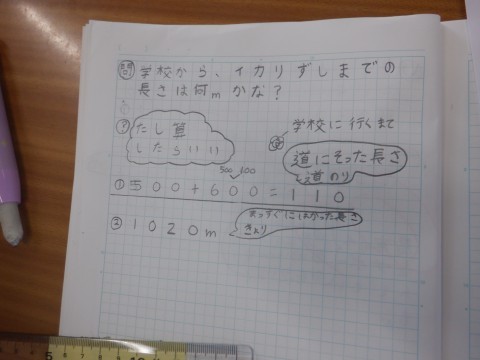 問 学校から、イカリずしまでの
長さは何mかな?
? たし算
したらいい
学校に行くまで
道にそった長さ
道のり
500 600
① 500+600=110
② 1020m
まっすぐにはかった長さ
きょり
5